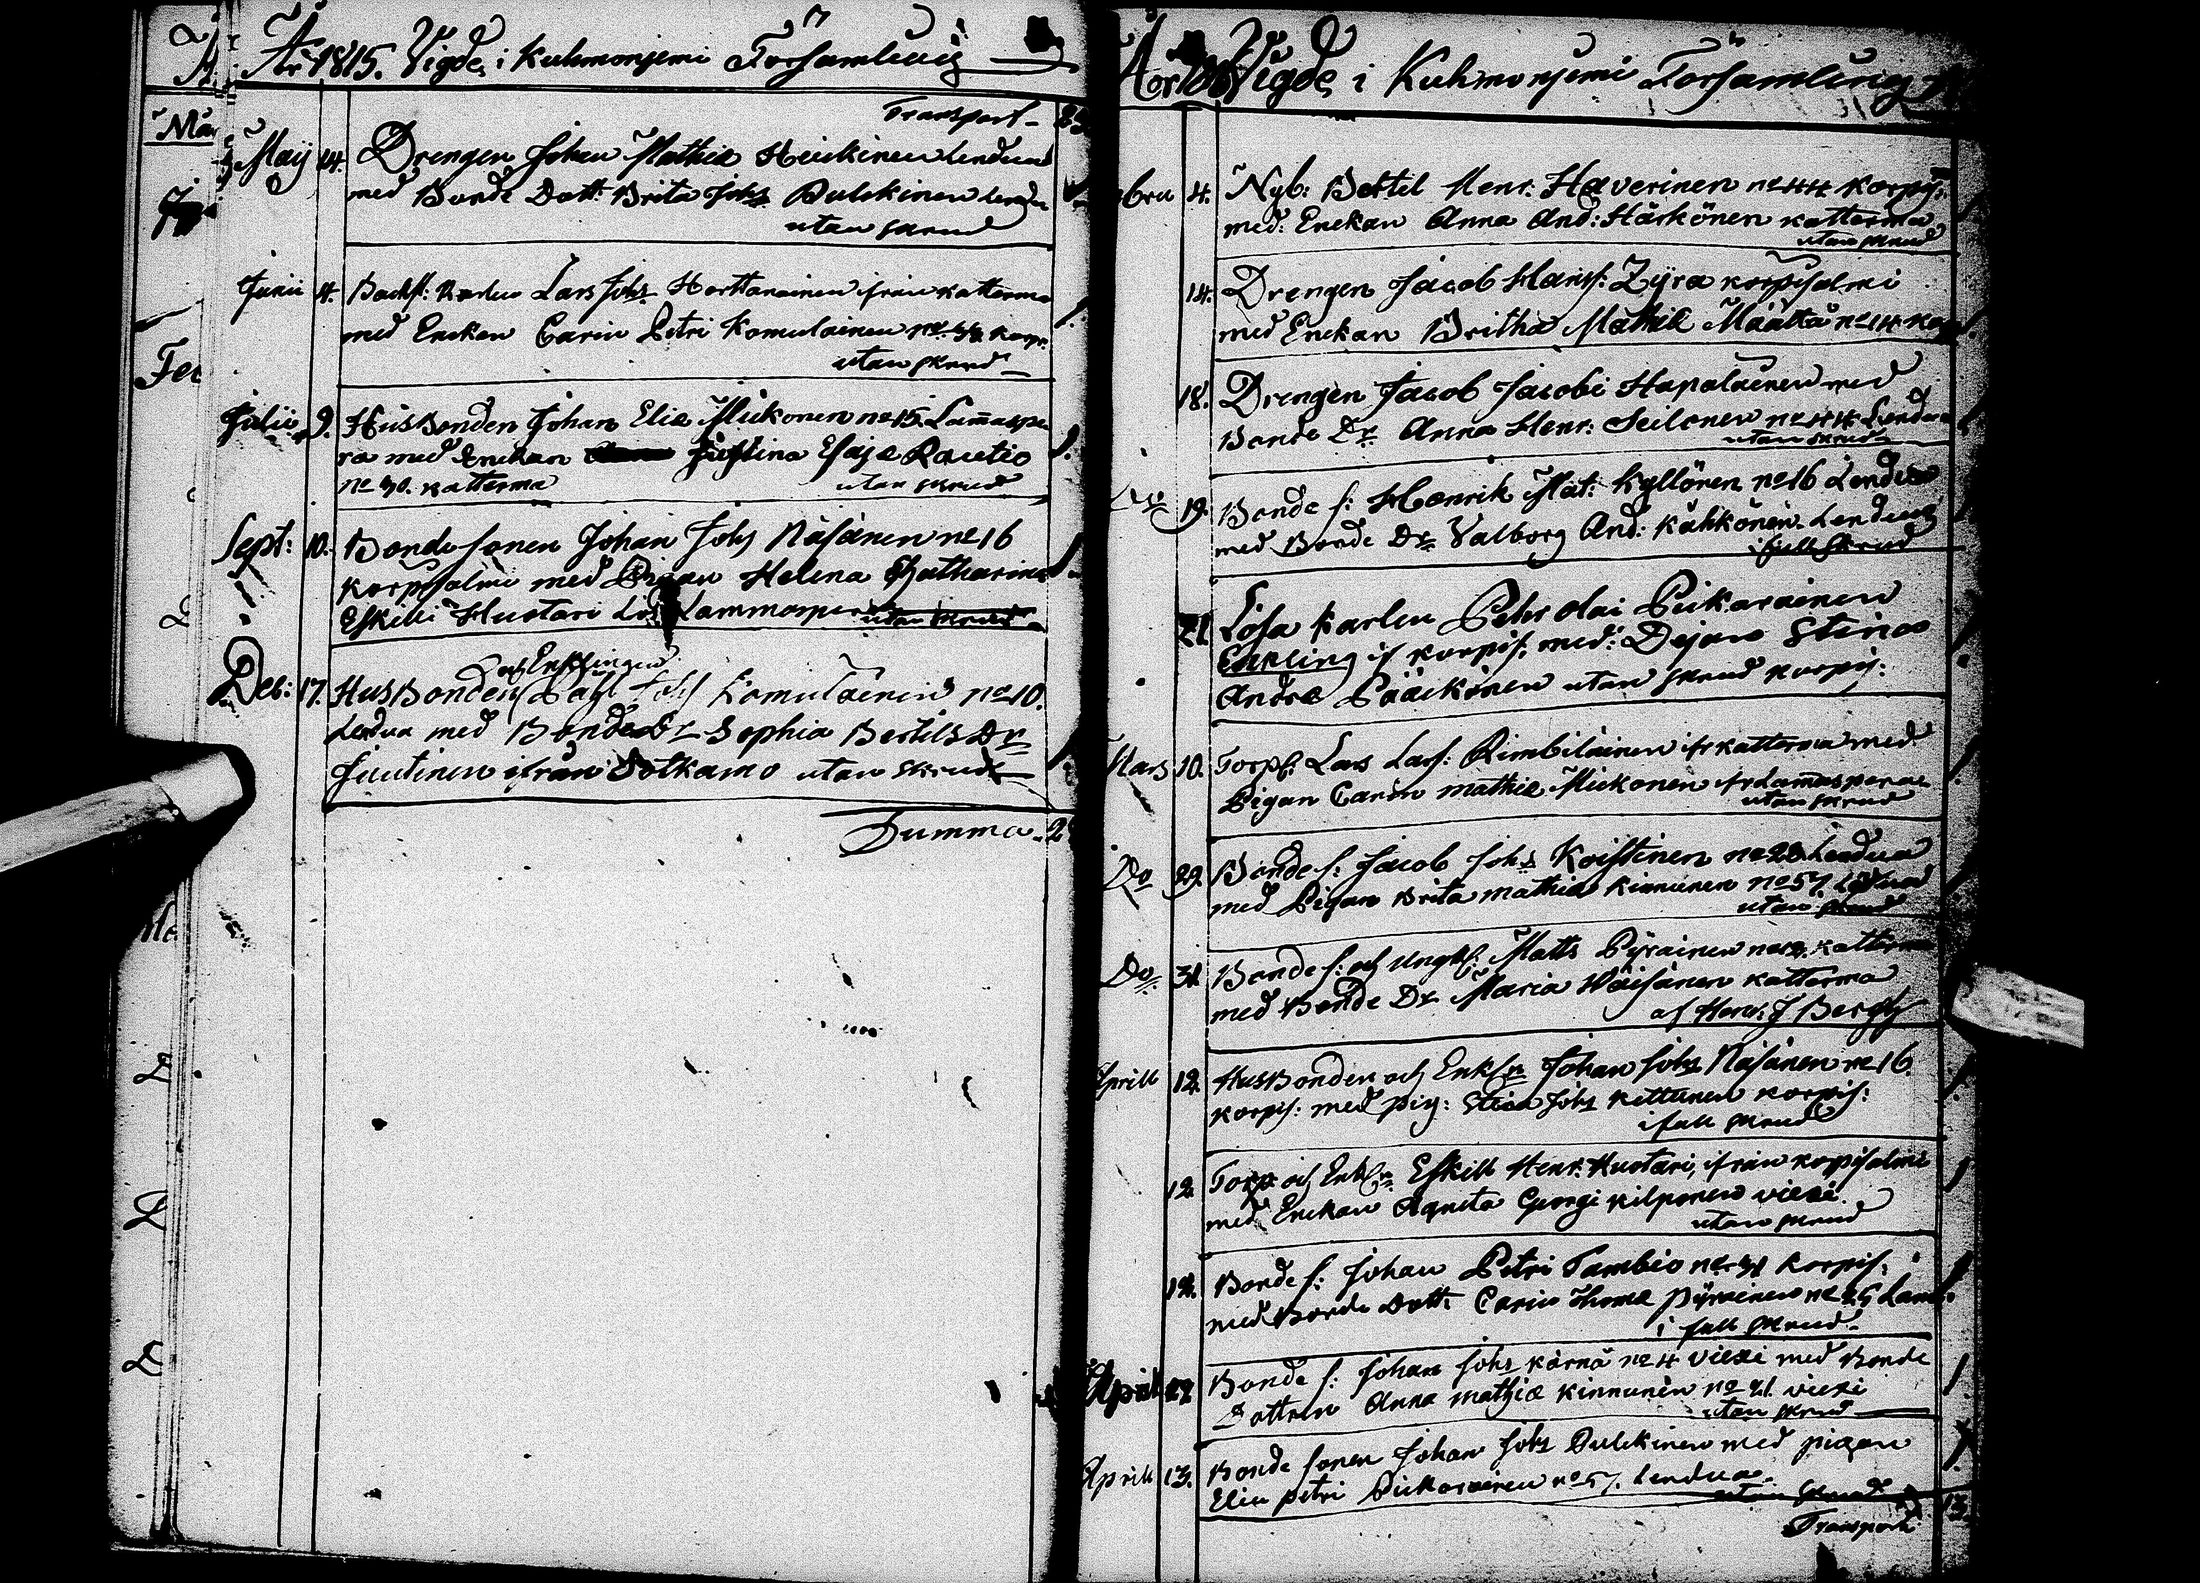 År 1815. Vigde i Kuhmoniemi Församling
Transport
Maÿ 14. Drengen Johan Mathiæ Heickinen Lendua
med Bonde Dott: Brita Johs Pulckinen Lendu
utan skrud
Junii 4. Lars Johs Horttanainen ifrån Katterma
med Enckan Carin Petri Komulainen Korp:
utan skrud
Julii 9. Husbonden Johan Eliæ Mickonen no 15. Lamaspe
ra med Enckan Justina Esajæ Rautio
no 30. Katterma utan skrud
Sept: 10. Bondesonen Johan Johs Näsänen no 16
Korpisalmi med Pigan Helena Catharina
Eskilli Huotari Lammasper utan skrud
och Enklingen
Dec: 17. Husbonden Påhl Johs Komulainen no 10.
Lendua med Bonde Dr Sophia Bertils Dr
Juutinen ifrån Sotkamo utan skrud
Summa
Vigde i Kuhmoniemi Församling
4. Nyb: Bertel Henr: Haverinen no 44 Korpis:
med Enckan Anna And: Härkönen Katterma
utan skrud
14. Drengen Jacob Hansf: Zyra Korpisalmi
med Enckan Britha Mathiæ Määttä no 14
18. Drengen Jacob Jacobi Hapalainen med
Bonde Dr Anna Henr: Seilonen no 44 Lendua
utan skrud
Do 19. Bonde s: Henrik Mat: Kyllönen no 16 Lendua
med Bonde Dr Valborg And: Kähkönen Lendua
i full skrud
21. Lösa Karlen Pehr Olai Pickarainen
Enkling if Korpis: med: Dejan Stina
Andræ Pääckönen utan skrud Korpis:
Mars 10. Torp: Lars Larf: Rimbiläinen ifr Katterma med
Pigan Carin Mathiæ Mickonen ifr Lamasperae
utan skrud
Do 29. Bonde s: Jacob Johs Koistinen no 28 Lendua
med Pigan Brita Mathiæ Kinnunen no 57. Lendua
utan skrud
Do 31. Bonde s: och Ungk: Matts Pyräinen Katterma
med Bonde Dr Maria Wäisänen Katterma
af Herr: J Bergh
Aprill 12. Husbonden och Enkln Johan Johs Näsänen no 16.
Korpis: med pig: Stina Johs Kettunen Korpis:
i full skrud
12. Torp och Enkln Eskill Henr: Huotari, ifrån Korpisalmi
med Enckan Agneta Georgi Kilponen viexi.
utan skrud
12. Bonde s: Johan Petri Tambio no 31 Korpis:
med Bonde Dott: Carin Thomæ Pyräinen no 25
i full skrud
April Bonde s: Johan Johs Kärnä no 4 viexi med Bonde
Dottren Anna Mathiæ Kinnunen no 21. viexi
utan skrud
Aprill 13. Bonde sonen Johan Johs Pulckinen med pigan
Elin Petri Pickarainen no 57. Lendua
utan skrud
Transport 13